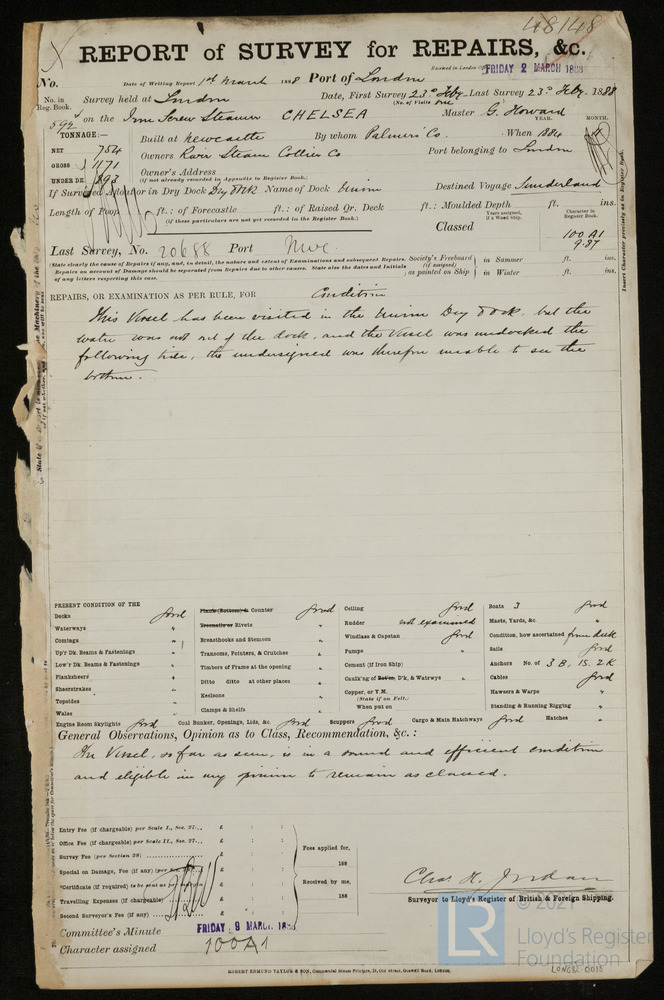 48148
REPORT of SURVEY for REPAIRS, &c.
Received in London Office FRIDAY 2 MARCH 1888
No. Date of Writing Report 1st March 1888 Port of London
No. in Reg. Book. Survey held at London Date, First Survey 23rd Feby Last Survey 23rd Feby 1888
(No. of Visits One)
592 on the Iron Screw Steamer CHELSEA Master G. Howard
TONNAGE:—
YEAR. MONTH.
Built at Newcastle By whom Palmers Co. When 1884
NET 754
GROSS 1171
UNDER DK 893
Owners River Steam Collier Co Port belonging to London
Owner's Address
(if not already recorded in Appendix to Register Book.)
If Surveyed Afloat or in Dry Dock Dry Dock Name of Dock Union Destined Voyage Sunderland
Length of Poop ft.: of Forecastle ft.: of Raised Qr. Deck ft.: Moulded Depth ft. ins.
(If these particulars are not yet recorded in the Register Book.)
Years assigned, if a Wood Ship.
Character in Register Book.
Classed 100A1
9.87
Last Survey, No. 20688 Port Nwc.
(State clearly the cause of Repairs if any, and, in detail, the nature and extent of Examinations and subsequent Repairs.
Repairs on account of Damage should be separated from Repairs due to other causes. State also the dates and Initials
of any letters respecting this case.
Society's Freeboard (if assigned) as painted on Ship in Summer ft. ins.
in Winter ft. ins.
REPAIRS, OR EXAMINATION AS PER RULE, FOR Condition
This Vessel has been visited in the Union Dry Dock, but the
water was not out of the dock, and the Vessel was undocked the
following tide, the undersigned was therefore unable to see the
bottom.
Insert Character precisely as in Register Book.
PRESENT CONDITION OF THE
Decks good
Waterways "
Comings "
Up'r Dk. Beams & Fastenings "
Low'r Dk. Beams & Fastenings "
Planksheers "
Sheerstrakes "
Topsides "
Wales "
Planks (Bottom) & Counter good
Treenails or Rivets "
Breasthooks and Stemson "
Transoms, Pointers, & Crutches "
Timbers of Frame at the opening "
Ditto ditto at other places "
Keelsons "
Clamps & Shelfs "
Ceiling good
Rudder not examined
Windlass & Capstan good
Pumps "
Cement (if Iron Ship) "
Caulk'ng of Bot'm, D'k, & Watrwys "
Copper, or Y.M.
(State if on Felt.)
When put on
Boats 3 good
Masts, Yards, &c. "
Condition, how ascertained from deck
Sails good
Anchors No. of 3 B, 1S. 2K
Cables good
Hawsers & Warps "
Standing & Running Rigging "
Engine Room Skylights good Coal Bunker, Openings, Lids, &c. good Scuppers good Cargo & Main Hatchways good Hatches "
General Observations, Opinion as to Class, Recommendation, &c.:
The Vessel, as far as seen, is in a sound and efficient condition
and eligible in my opinion to remain as classed.
Entry Fee (if chargeable) per Scale I., Sec. 27... £ : :
Office Fee (if chargeable) per Scale II., Sec. 27... £ : :
Survey Fee (per Section 28) £ : :
Special on Damage, Fee (if any) £ : :
*Certificate (if required) to be sent as per £ : :
Travelling Expenses (if chargeable) £ : :
Second Surveyor's Fee (if any) £ : :
Fees applied for,
188
Received by me,
188
Chas. H. Jordan
Surveyor to Lloyd's Register of British & Foreign Shipping.
Committee's Minute FRIDAY 9 MARCH 1888
Character assigned 100A1
ROBERT EDMUND TAYLOR & SON, Commercial Steam Printers, 19, Old Street, Goswell Road, London.
© 2021
LR Lloyd's Register
Foundation